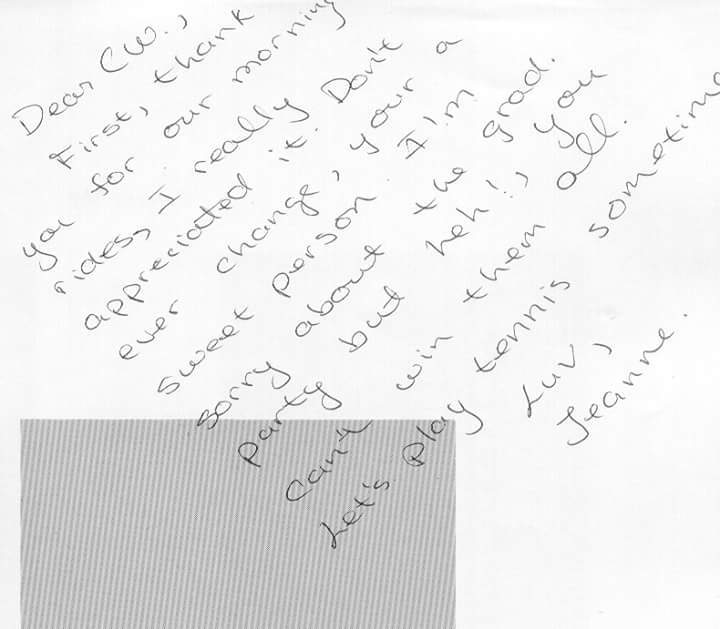 Dear CW.,
First, thank
you for our morning
rides, I really
appreciated it. Don't
ever change, your a
sweet person. I'm
sorry about the grad.
party but heh!, you
can't win them all.
Let's play tennis sometime
Luv,
Jeanne.